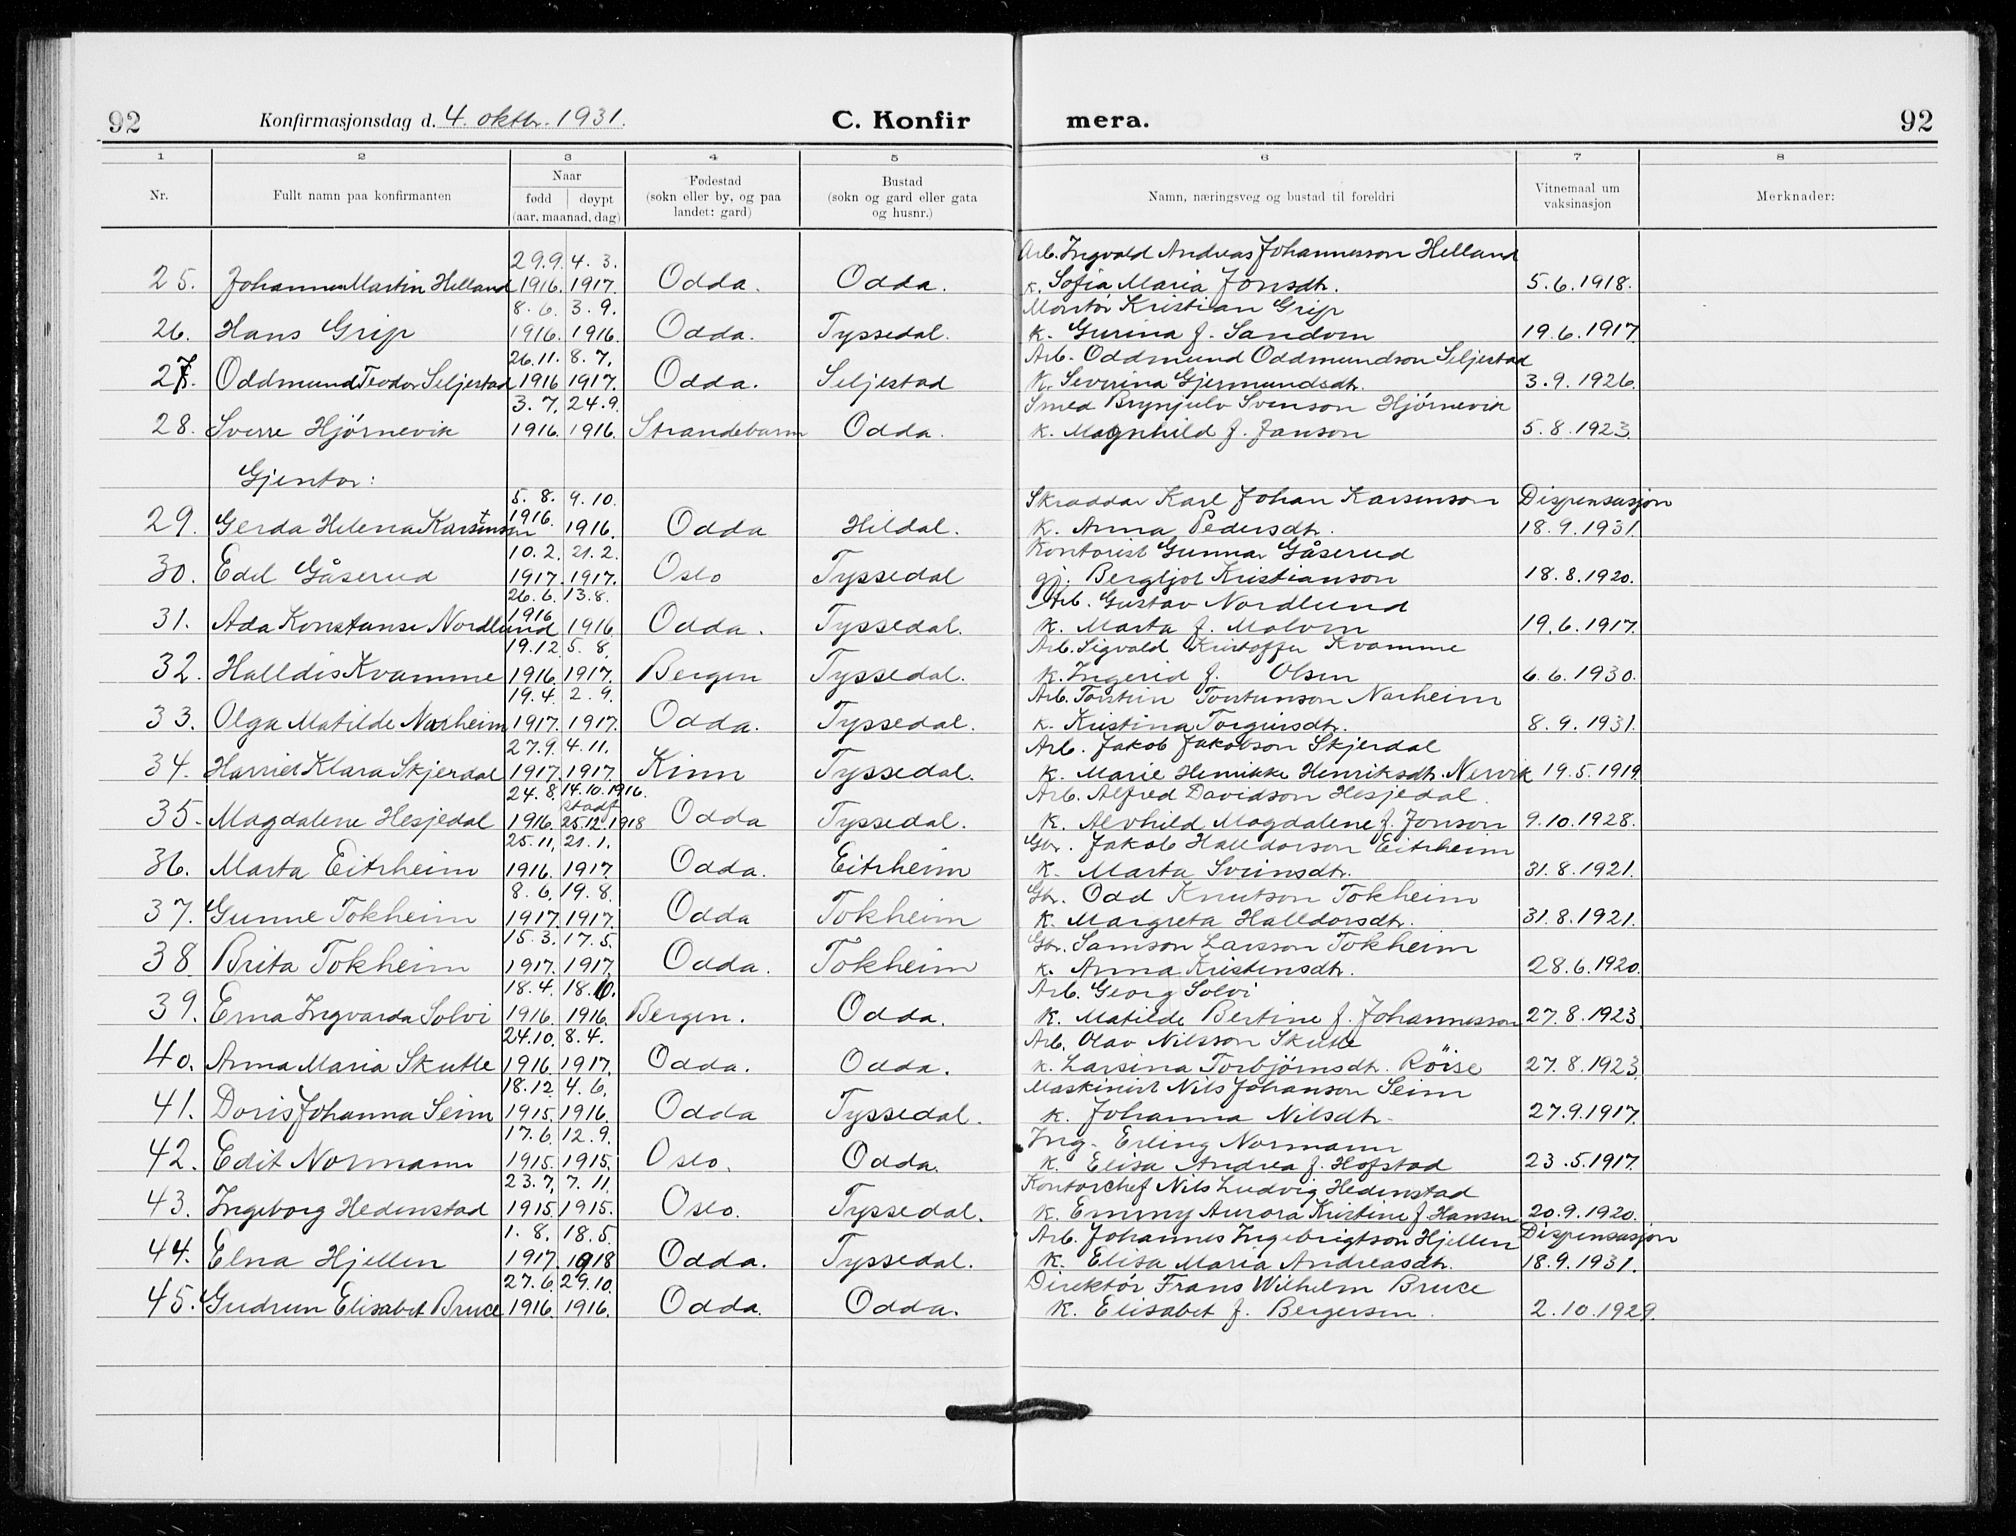 92 Konfirmasjonsdag d. 4. oktbr. 1931. C. Konfir mera. 92
1 2 3 4 5 6 7 8
Nr. Fullt namn paa konfirmanten Naar fødd døypt (aar, maanad, dag) Fødestad (sokn eller by, og paa landet: gard) Bustad (sokn og gard eller gata og husnr.) Namn, næringsveg og bustad til foreldri Vitnemaal um vaksinasjon Merknader:
29.9. 4. 3. Arb. Ingvald Andreas Johannesson Helland
25. Johannes Martin Helland 1916. 1917. Odda. Odda. k. Sofia Maria Jonsdtr. 5.6.1918.
8. 6. 3. 9. Montør Kristian Grip
26. Hans Grip 1916. 1916. Odda. Tyssedal. k. Gurina f. Sandven 19.6.1917.
26.11. 8. 7. Arb. Oddmund Oddmundson Seljestad
27. Oddmund Teodor Seljestad 1916 1917. Odda. Seljestad k. Severina Gjermundsdtr. 3.9.1926.
3. 7. 24.9. Smed Brynjulv Svenson Hjørnevik
28. Sverre Hjørnevik 1916. 1916. Strandebarm Odda. k. Magnhild f. Janson 5.8.1923.
Gjentor:
5. 8. 9. 10. Skraddar Karl Johan Karsenson Dispensasjon
29. Gerda Helena Karstenson 1916. 1916. Odda Hildal. k. Anna Pedersdtr. 18.9.1931.
10. 2. 21. 2. Kontorist Gunnar Gåserud
30. Edel Gåserud 1917. 1917. Oslo Tyssedal gj. Bergljot Kristianson 18.8.1920.
26. 6. 13. 8. Arb. Gustav Nordlund
31. Ada Konstanse Nordlund 1916 1916. Odda. Tyssedal. k. Marta f. Malvin 19.6.1917.
19.12. 5. 8. Arb. Sigvald Kristoffer Kvamme
32. Halldis Kvamme 1916. 1917. Bergen Tyssedal. k. Ingerid f. Olsen 6.6.1930.
19. 4. 2. 9. Arb. Torstein Torsteinson Narheim
33. Olga Matilde Narheim 1917. 1917. Odda. Tyssedal. k. Kristina Torgeirsdtr. 8.9.1931.
27.9. 4. 11. Arb. Jakob Jakobson Skjerdal
34. Harriet Klara Skjerdal 1917. 1917. Kinn Tyssedal. k. Marie Henrikke Henriksdtr. Nervik 19.5.1919.
24. 8. 14. 10. 1916. Arb. Alfred Davidson Hesjedal.
35. Magdalene Hesjedal 1916. stadf. 25.12.1918 Odda Tyssedal. k. Alvhild Magdalene f. Jonson 9.10.1928.
25.11. 21. 1. Gbr. Jakob Halldorson Eitrheim
36. Marta Eitrheim 1916. 1917. Odda. Eitrheim k. Marta Sveinsdtr. 31.8.1921.
8. 6. 19. 8. Gbr. Odd Knutson Tokheim
37. Gunne Tokheim 1917. 1917. Odda Tokheim k. Margreta Halldorsdtr. 31.8.1921.
15. 3. 17. 5. Gbr. Samson Larsson Tokheim
38 Brita Tokheim 1917. 1917. Odda. Tokheim k. Anna Kristensdtr. 28.6.1920.
18. 4. 18. 10. Arb. Georg Solvi
39. Erna Ingvarda Solvi 1916. 1916. Bergen. Odda. k. Matilde Bertine f. Johannesson 27.8.1923.
24.10. 8. 4. Arb. Olav Nilsson Skutle
40. Anna Maria Skutle 1916. 1917. Odda. Odda. k. Larsina Torbjørnsdtr. Röise 27.8.1923.
18.12. 4. 6. Maskinist Nils Johanson Seim
41. Doris Johanna Seim 1915. 1916. Odda Tyssedal. k. Johanna Nilsdtr. 27.9.1917.
17. 6. 12. 9. Ing. Erling Normann
42. Edit Normann 1915. 1915. Oslo. Odda. k. Elisa Andrea f. Hofstad 23.5.1917.
23. 7. 7. 11. Kontorchef Nils Ludvig Hedenstad
43. Ingeborg Hedenstad 1915. 1915. Oslo. Tyssedal. k. Emmy Aurora Kristine f. Hansen 20.9.1920.
1. 8. 18. 5. Arb. Johannes Ingebrigtson Hjellen Dispensasjon
44. Elna Hjellen 1917. 1918 Odda. Tyssedal. k. Elisa Maria Andreasdtr. 18.9.1931.
27. 6. 29. 10. Direktør Frans Wilhelm Bruce
45. Gudrun Elisabet Bruce 1916. 1916. Odda. Odda. k. Elisabet f. Bergersen. 2.10.1929.